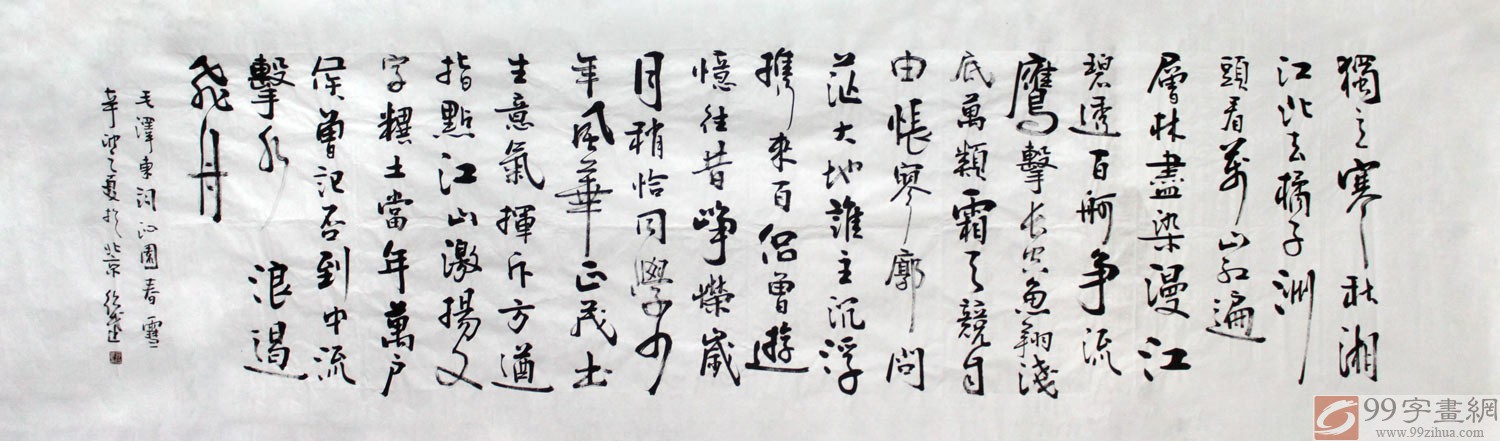 獨立寒秋湘
江北去橘子洲
頭看萬山红遍
層林盡染漫江
碧透百舸争流
鷹擊长空魚翔淺
底萬類霜天競自
由悵寥廓問
茫大地誰主沉浮
携來百侣曾遊
憶往昔崢嶸歲
月稍恰同學少
年風華正茂书
生意氣揮斥方遒
指點江山激揚文
字糞土當年萬户
侯曾记否到中流
擊水浪遏
飛舟
毛澤東词沁園春雪
辛卯之夏於北京
99字畫網
www.99zihua.com